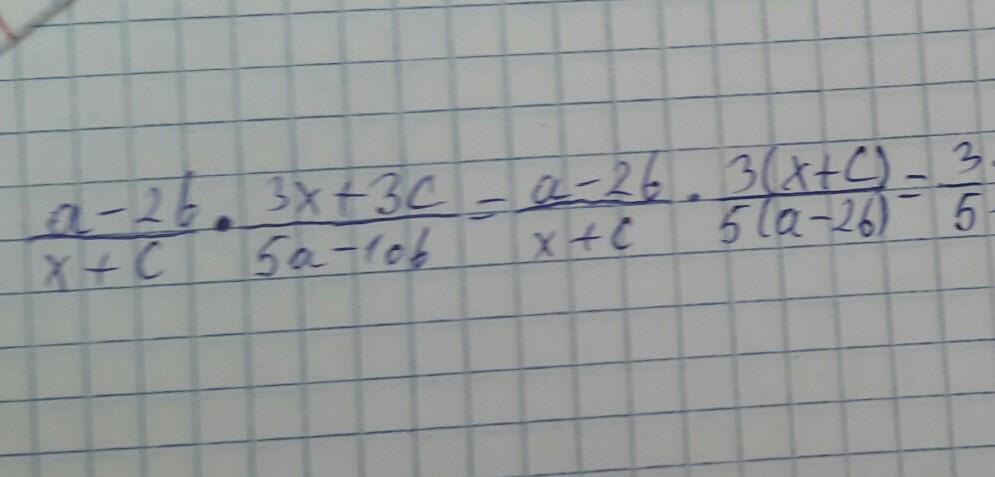 \frac{a-2b}{x+c} \cdot \frac{3x+3c}{5a-10b} = \frac{a-2b}{x+c} \cdot \frac{3(x+c)}{5(a-2b)} = \frac{3}{5}